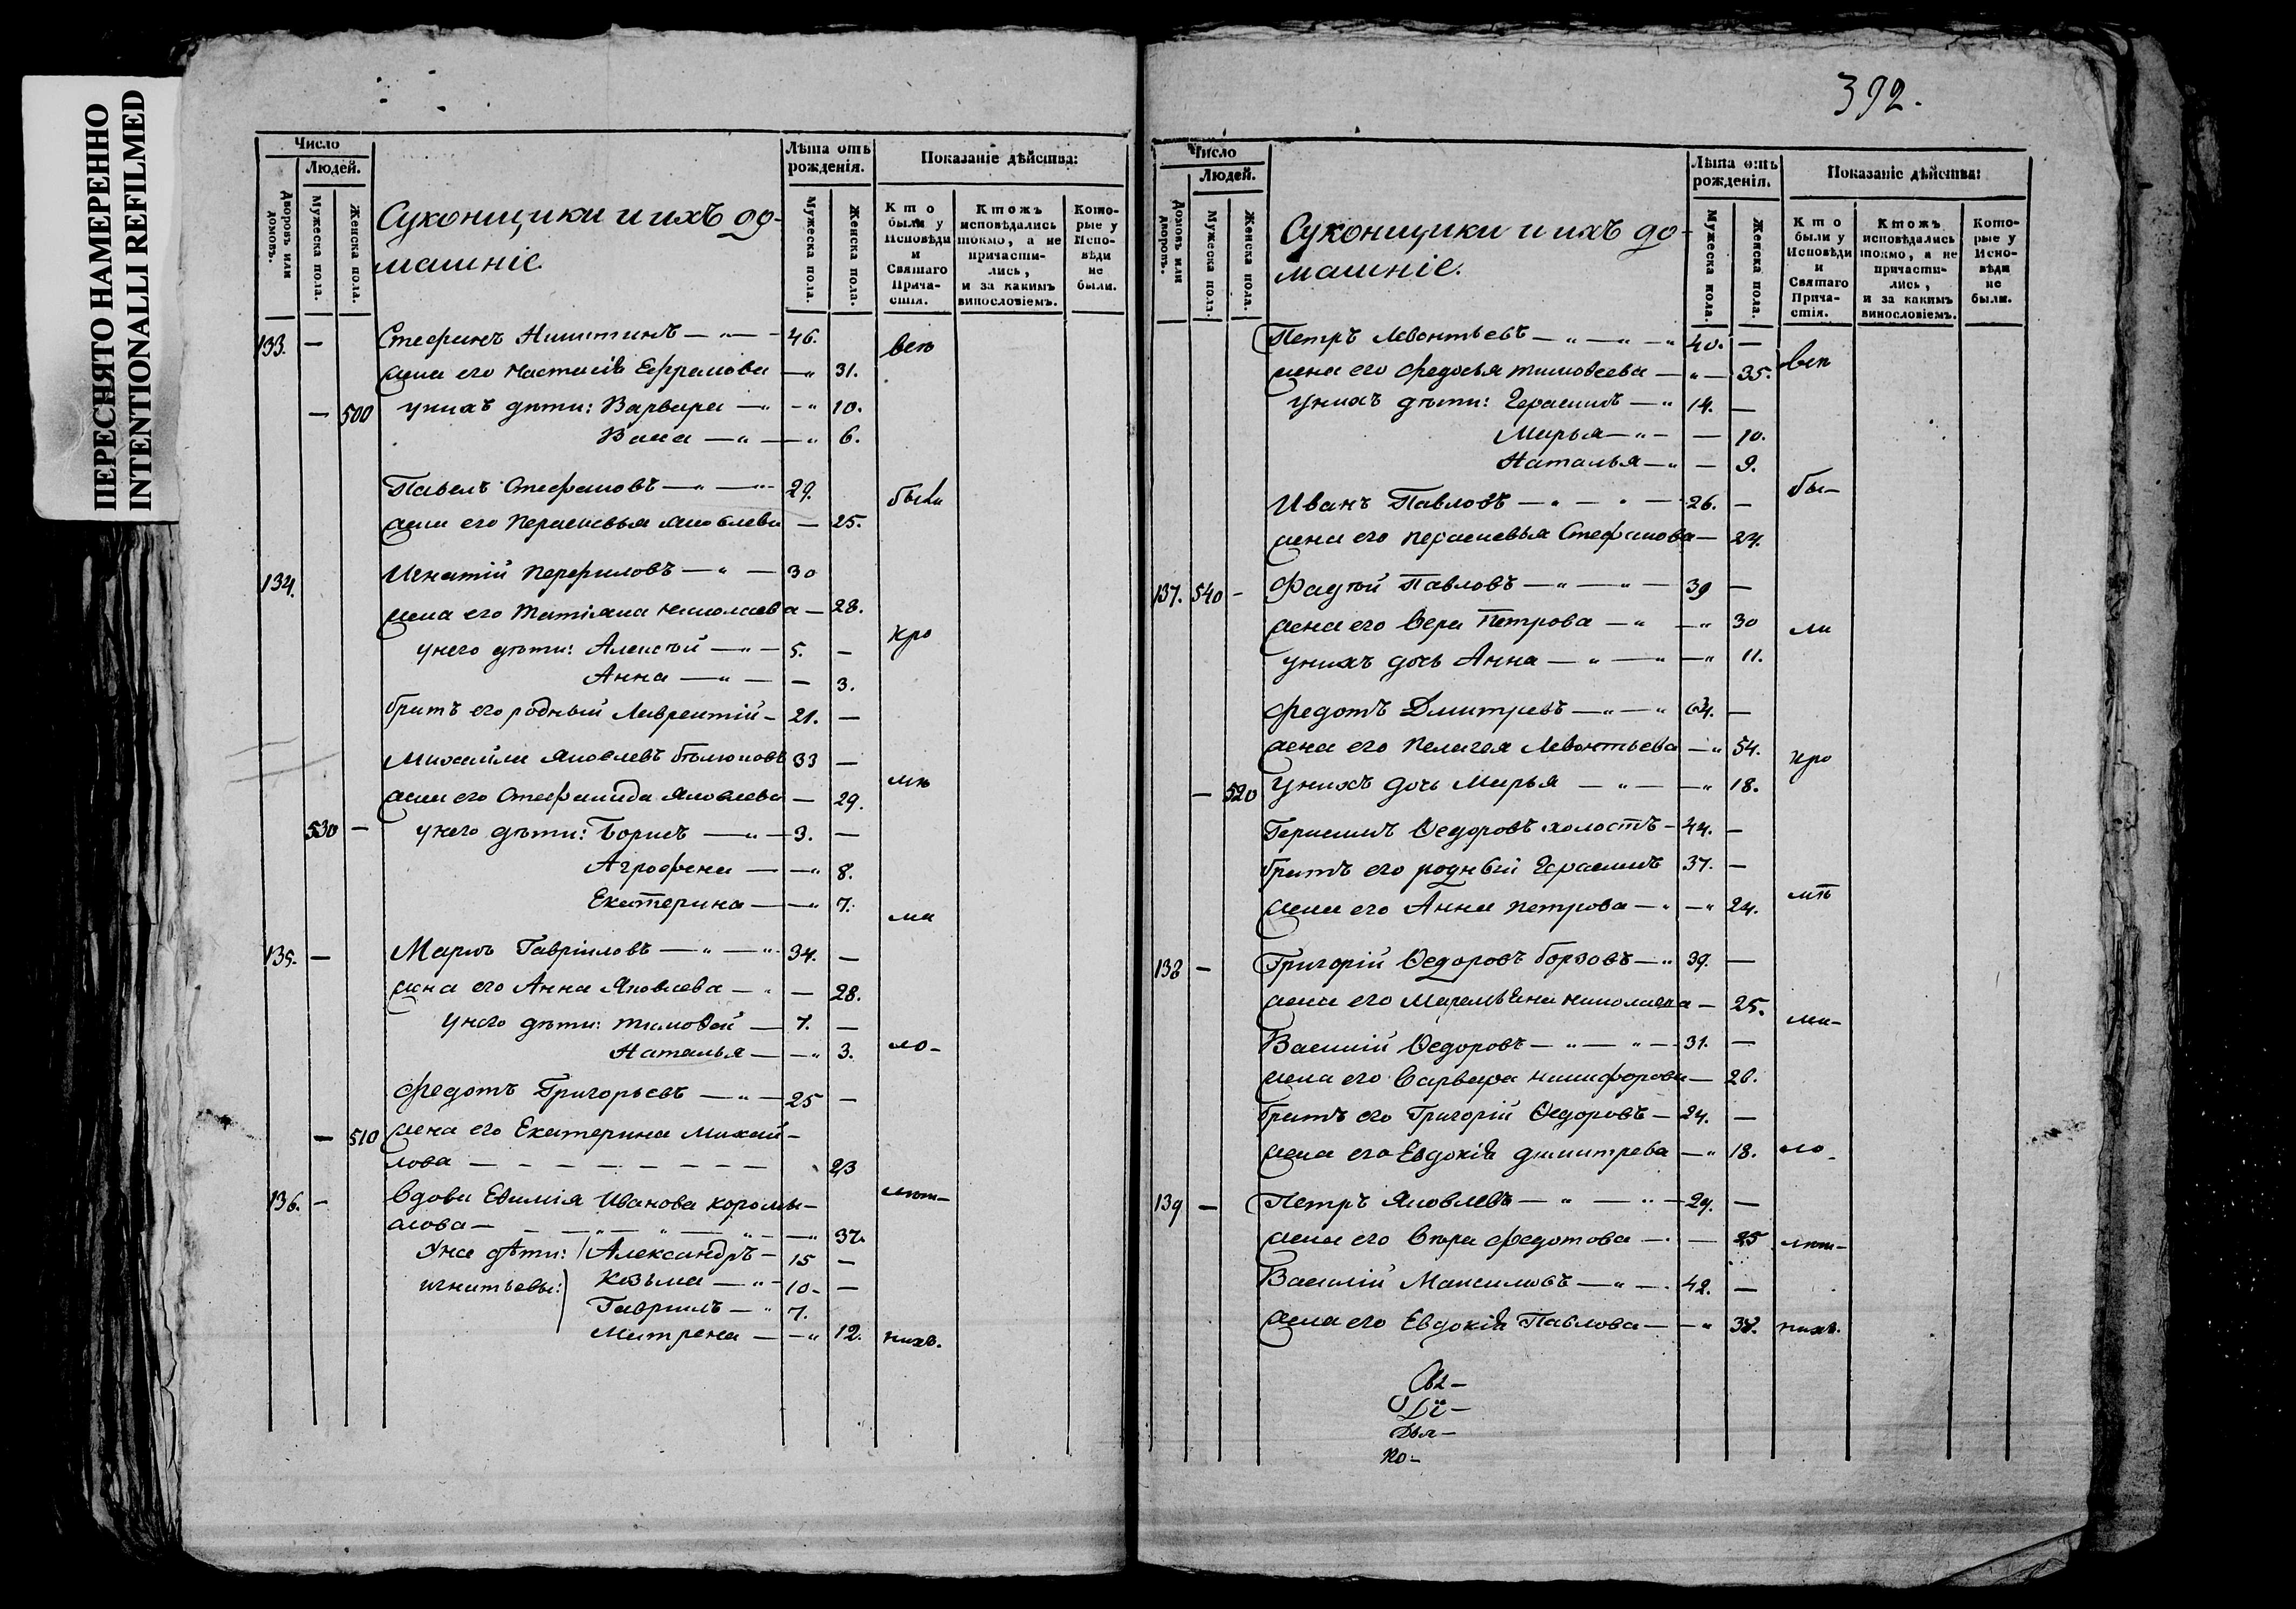 ПЕРЕСНЯТО НАМЕРЕННО
INTENTIONALLI REFILMED
Число
Людей.
Дворовъ или домовъ.
Мужеска пола.
Женска пола.
Суконщики и ихъ до-
машніе.
Лѣта отъ рожденія.
Мужеска пола.
Женска пола.
Показаніе дѣйства:
Кто были у Исповѣди и Святаго Прича-стія.
Ктожъ исповѣдались токмо, а не причасти-лись, и за какимъ винословіемъ.
Кото-рые у Испо-вѣди не были.
133. — Стефанъ Никитинъ — 46. всѣ
жена его Настасія Ефремова — 31.
— 500 у нихъ дѣти: Варвара — 10.
6.
Павелъ Стефановъ — 29. были
жена его Парасковья Яковлева — 25.
134. Игнатій Перфиловъ — 30
жена его Татіяна Николаева — 28.
у него дѣти: Алексѣй — 5. — кро
Анна — 3.
братъ его родный Лаврентій — 21. —
Михайла Яковлевъ 33 —
мѣ
жена его Стефанида Яковлева — 29.
530 — у него дѣти: Борисъ — 9. —
Агрофена — 8.
Екатерина — 7.
ма
135. — Марко Гавріиловъ — 34. —
жена его Анна Яковлева — 28.
у него дѣти: Тимоѳей — 7. —
Наталья — 3. ло-
Федотъ Григорьевъ — 25 —
— 510 жена его Екатерина Михай-
лова — 23
136. — Вдова Евѳимія Иванова
37.
У нее дѣти: Александръ — 15 —
Игнатьевы: Козьма — 10 —
Гаврилъ — 7.
Матрена — 12. нихъ.
392.
Число
Людей.
Домовъ или дворовъ.
Мужеска пола.
Женска пола.
Суконщики и ихъ до-
машніе.
Лѣта отъ рожденія.
Мужеска пола.
Женска пола.
Показаніе дѣйства:
Кто были у Исповѣди и Святаго Прича-стія.
Ктожъ исповѣдались токмо, а не причасти-лись, и за какимъ винословіемъ.
Кото-рые у Испо-вѣди не были.
Петръ Левонтьевъ — 40. — всѣ
жена его Федосья Тимоѳеева — 35.
у нихъ дѣти: Герасимъ — 14. —
Марья — 10.
Наталья — 9.
бы-
Иванъ Павловъ — 26. —
жена его Парасковья Стефанова — 24.
137. 540 — Фадѣй Павловъ — 39 —
жена его Вера Петрова — 30 ли
у нихъ дочь Анна — 11.
Федотъ Дмитревъ — 64. —
жена его Пелагея Левонтьева — 54. кро
— 520 у нихъ дочь Марья — 18.
Герасимъ Ѳедоровъ холостъ — 44. —
братъ его родный Герасимъ 37. —
мѣ
жена его Анна Петрова — 24.
138 — Григорій Ѳедоровъ Борзовъ — 39. —
жена его Николаева — 25.
ма-
Василій Ѳедоровъ — 31. —
жена его Варвара Никифорова — 26.
братъ его Григорій Ѳедоровъ — 24. —
жена его Евдокія Димитрева — 18. ло-
139 — Петръ Яковлевъ — 29. —
жена его Вѣра Федотова — 25 лѣт-
Василій Максимовъ — 42. —
жена его Евдокія Павлова — 38. нихъ.
По-